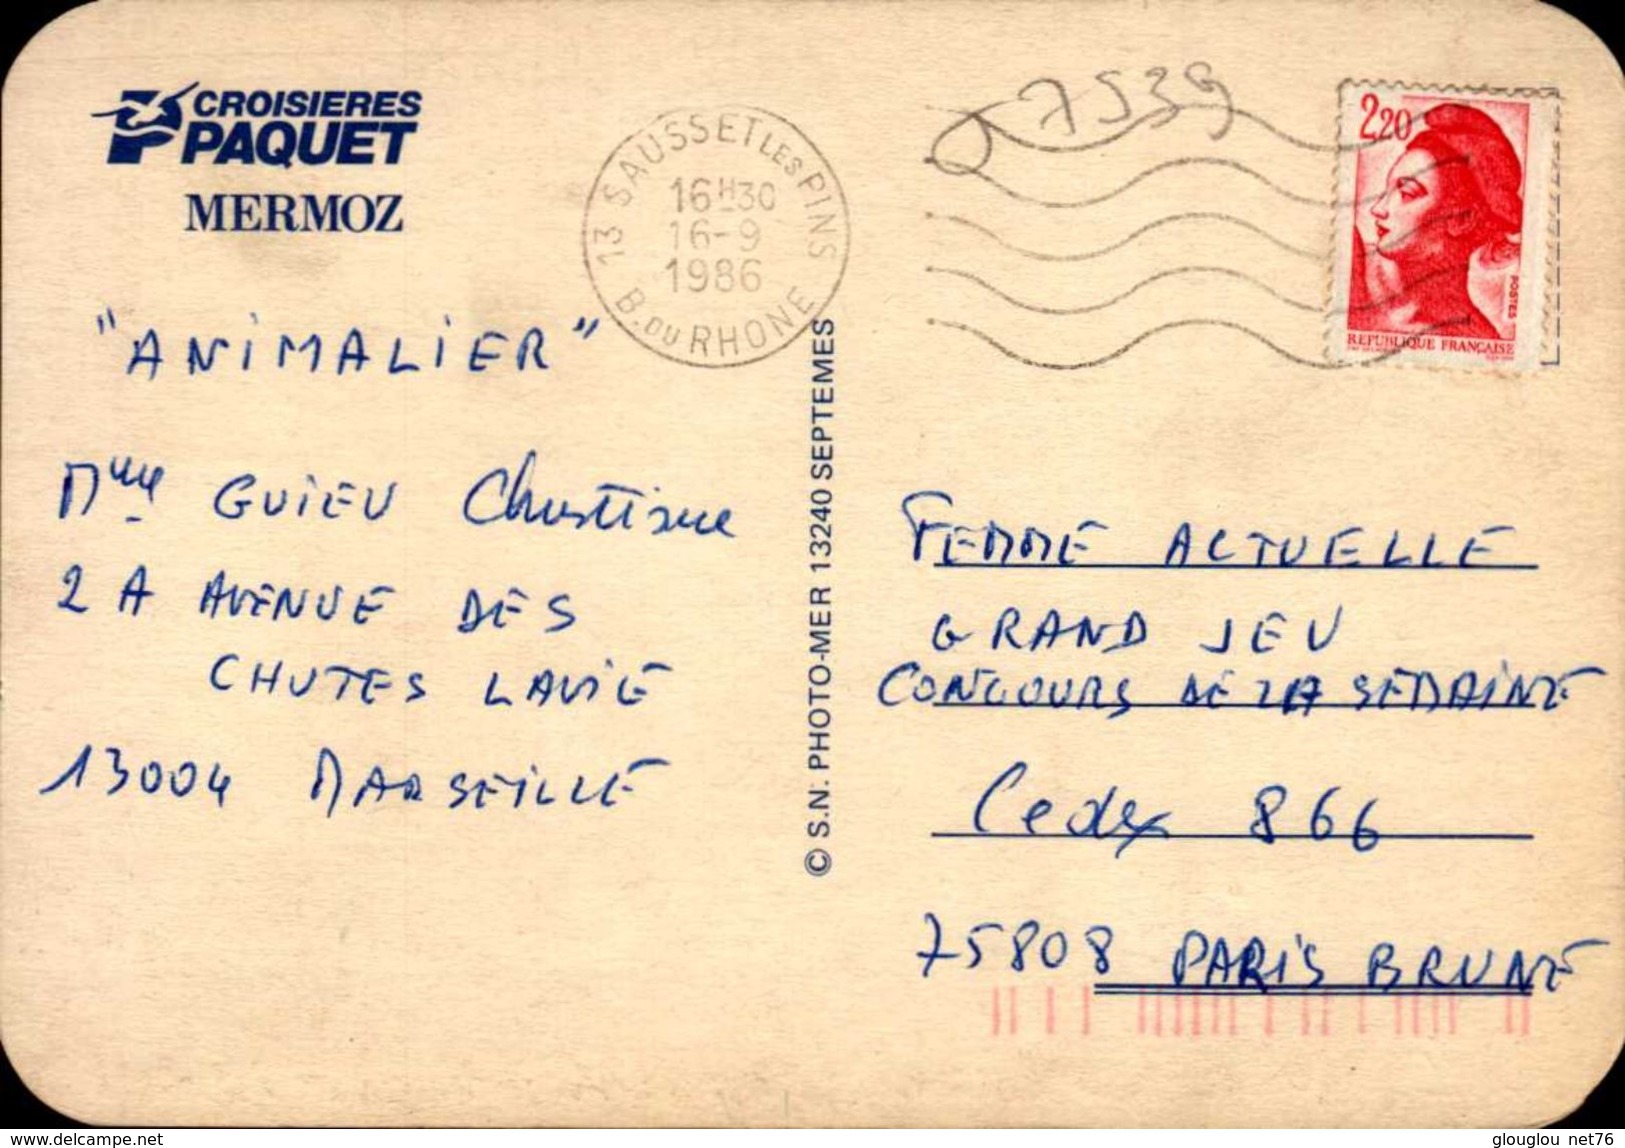 CROISIERES
PAQUET
MERMOZ
"ANIMALIER"
Mme GUIEU Christine
2 A AVENUE DES
CHUTES LAVIE
13004 MARSEILLE
13 SAUSSET LES PINS
16H30
16-9
1986
B. DU RHONE
© S.N. PHOTO-MER 13240 SEPTEMES
7539
2,20
POSTES
REPUBLIQUE FRANÇAISE
FEMME ACTUELLE
GRAND JEU
CONCOURS DE LA SEMAINE
Cedex 866
75808 PARIS BRUNE
www.delcampe.net
glouglou_net76